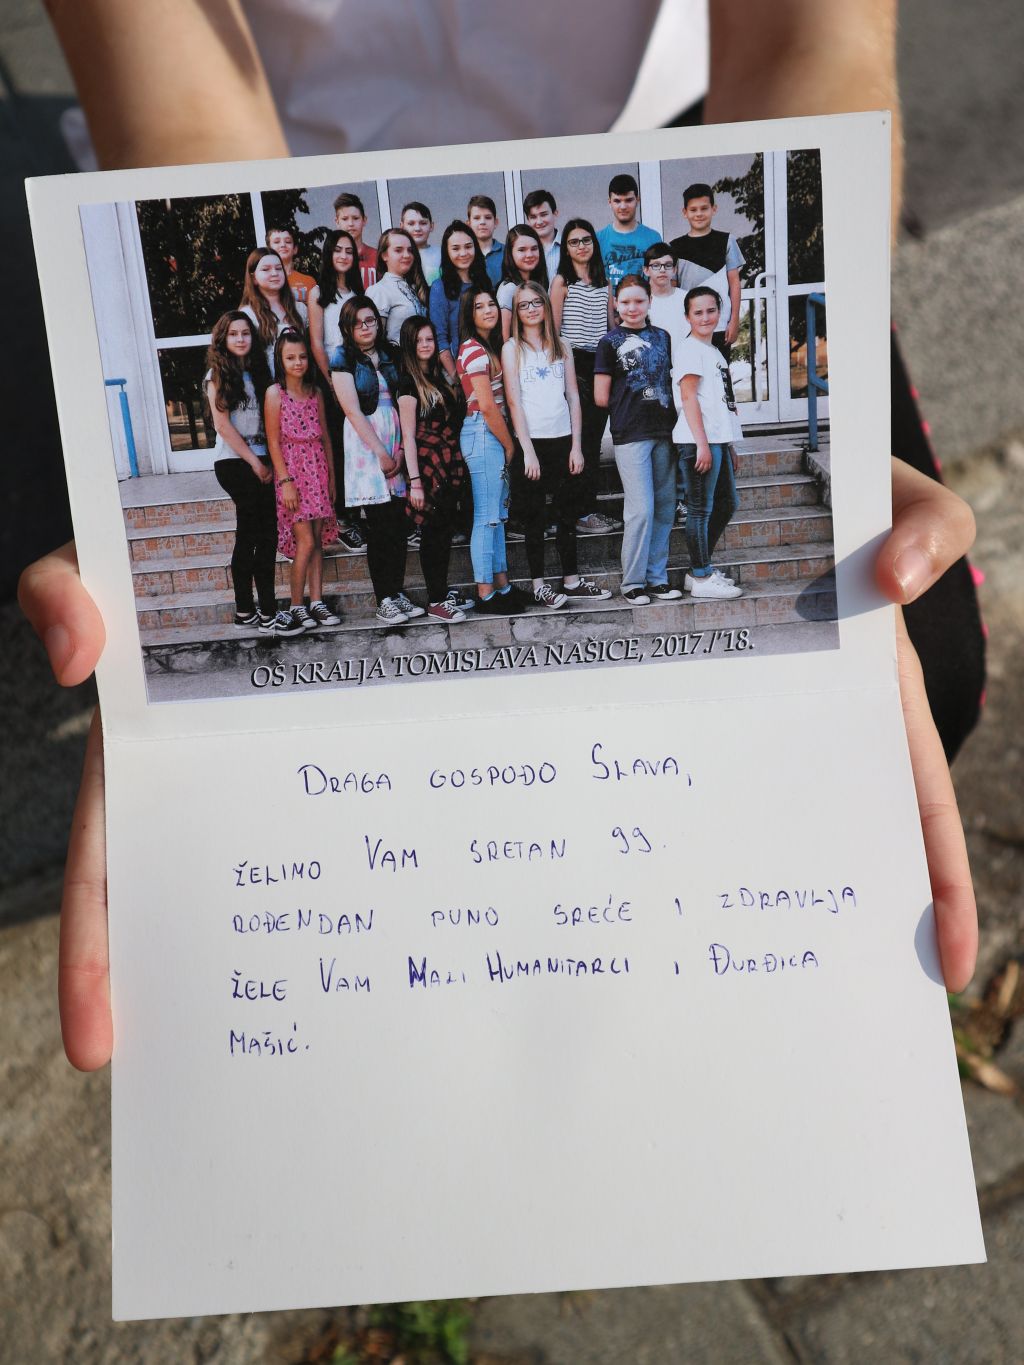 I U
OŠ KRALJA TOMISLAVA NAŠICE, 2017./'18.
DRAGA GOSPOĐO SLAVA,
ŽELIMO VAM SRETAN 99.
ROĐENDAN PUNO SREĆE I ZDRAVLJA
ŽELE VAM MALI HUMANITARCI I ĐURĐICA
MAŠIĆ.